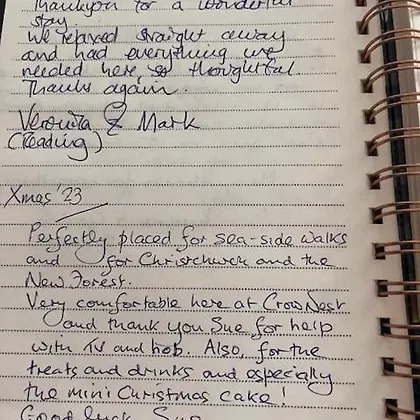 Thankyou for a wonderful
stay.
We relaxed straight away
and had everything we
needed here, so thoughtful.
Thanks again.
Veronica & Mark
(Reading)
Xmas '23
Perfectly placed for sea-side walks
and for Christchurch and the
New Forest.
Very comfortable here at Crow Nest
and thank you Sue for help
with TV and hob. Also, for the
treats and drinks and especially
the mini Christmas cake!
Good luck Sue